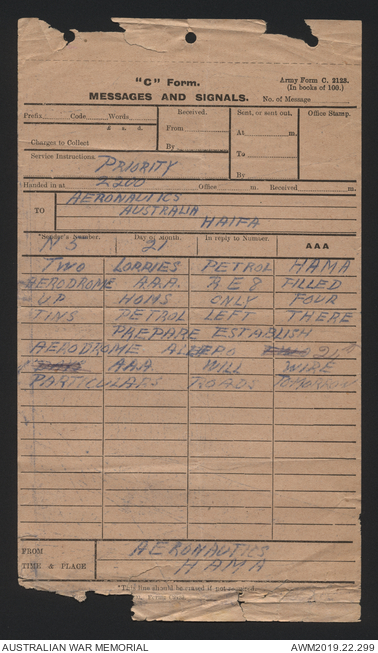 "C" Form.
Army Form C. 2123.
(In books of 100.)
MESSAGES AND SIGNALS.
No. of Message
Prefix Code Words
£ s. d.
Charges to Collect
Received.
From
By
Sent, or sent out.
At m.
To
By
Office Stamp.
Service Instructions. PRIORITY
2200
Handed in at Office m. Received m.
TO AERONAUTICS
AUSTRALIA
HAIFA
*Sender's Number. Day of Month. In reply to Number. AAA
N5 21
TWO LORRIES PETROL HAMA
AERODROME AAA RE8 FILLED
UP HOMS ONLY FOUR
TINS PETROL LEFT THERE
PREPARE ESTABLISH
AERODROME ALEPPO
AAA WILL WIRE
PARTICULARS ROADS TOMORROW
FROM AERONAUTICS
TIME & PLACE HAMA
*This line should be erased if not required.
AUSTRALIAN WAR MEMORIAL
AWM2019.22.299